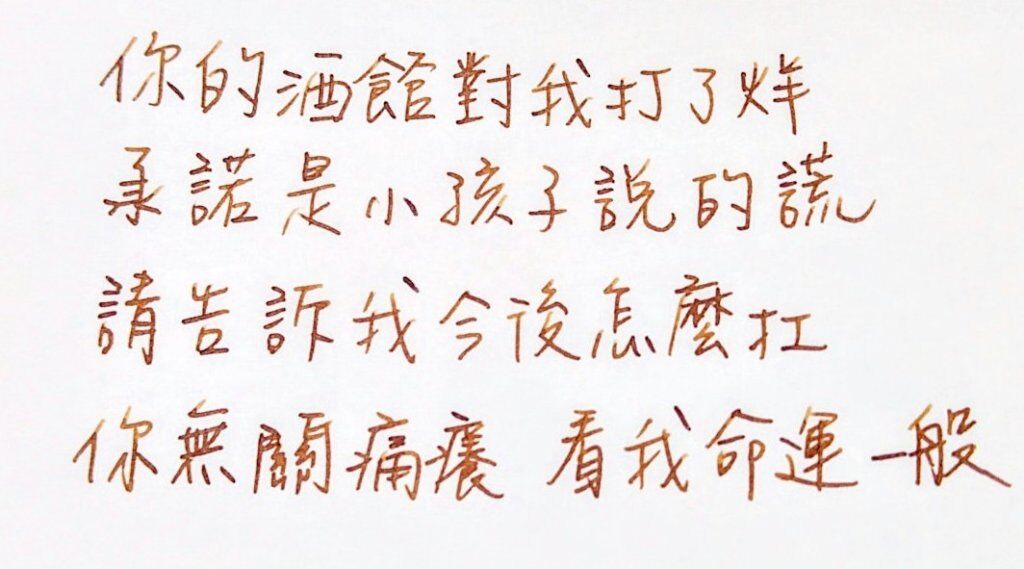 你的酒館對我打了烊
承諾是小孩子說的謊
請告訴我今後怎麼扛
你無關痛癢 看我命運一般